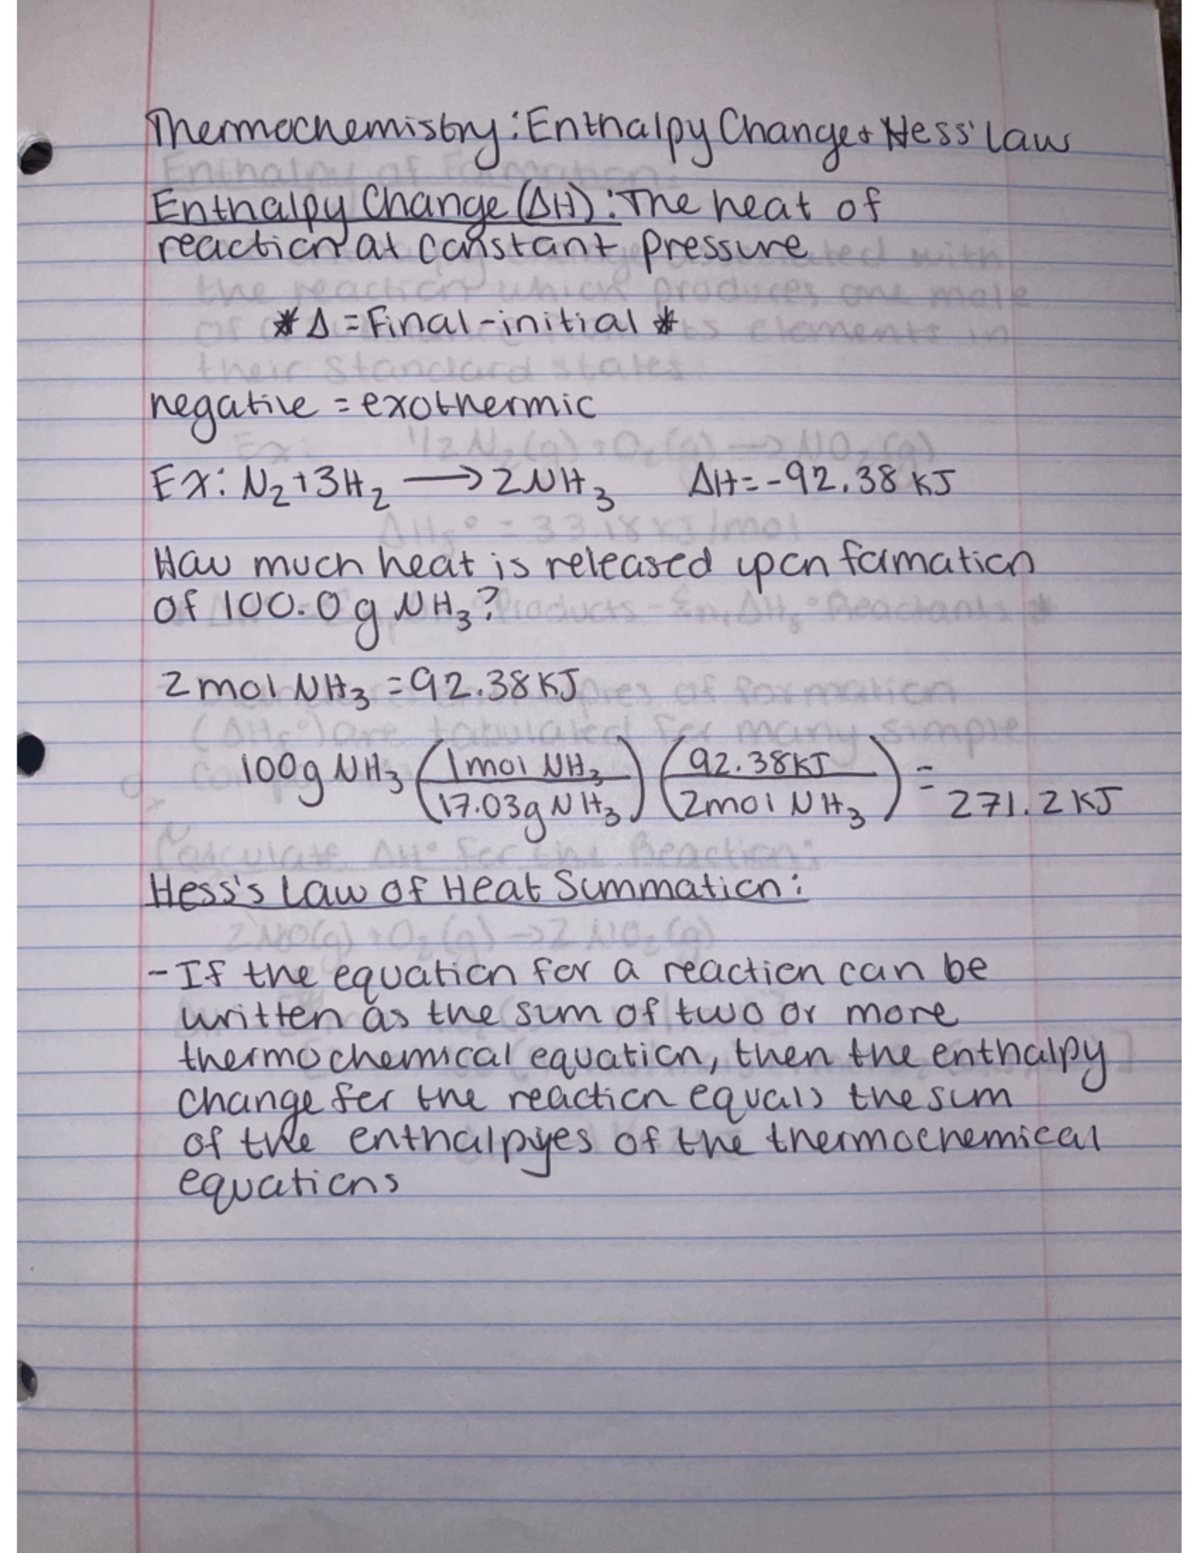 Thermochemistry: Enthalpy Change + Hess' Law
Enthalpy Change (ΔH): The heat of
reaction at constant pressure
* Δ = Final - initial *
negative = exothermic
Ex: N₂ + 3H₂ ⟶ 2NH₃ ΔH = -92.38 KJ
How much heat is released upon formation
of 100.0g NH₃?
2 mol NH₃ = 92.38 KJ
100g NH₃ (1 mol NH₃ / 17.03g NH₃) (92.38KJ / 2mol NH₃) = 271.2 KJ
Hess's Law of Heat Summation:
- If the equation for a reaction can be
written as the sum of two or more
thermochemical equation, then the enthalpy
change for the reaction equals the sum
of the enthalpyes of the thermochemical
equations